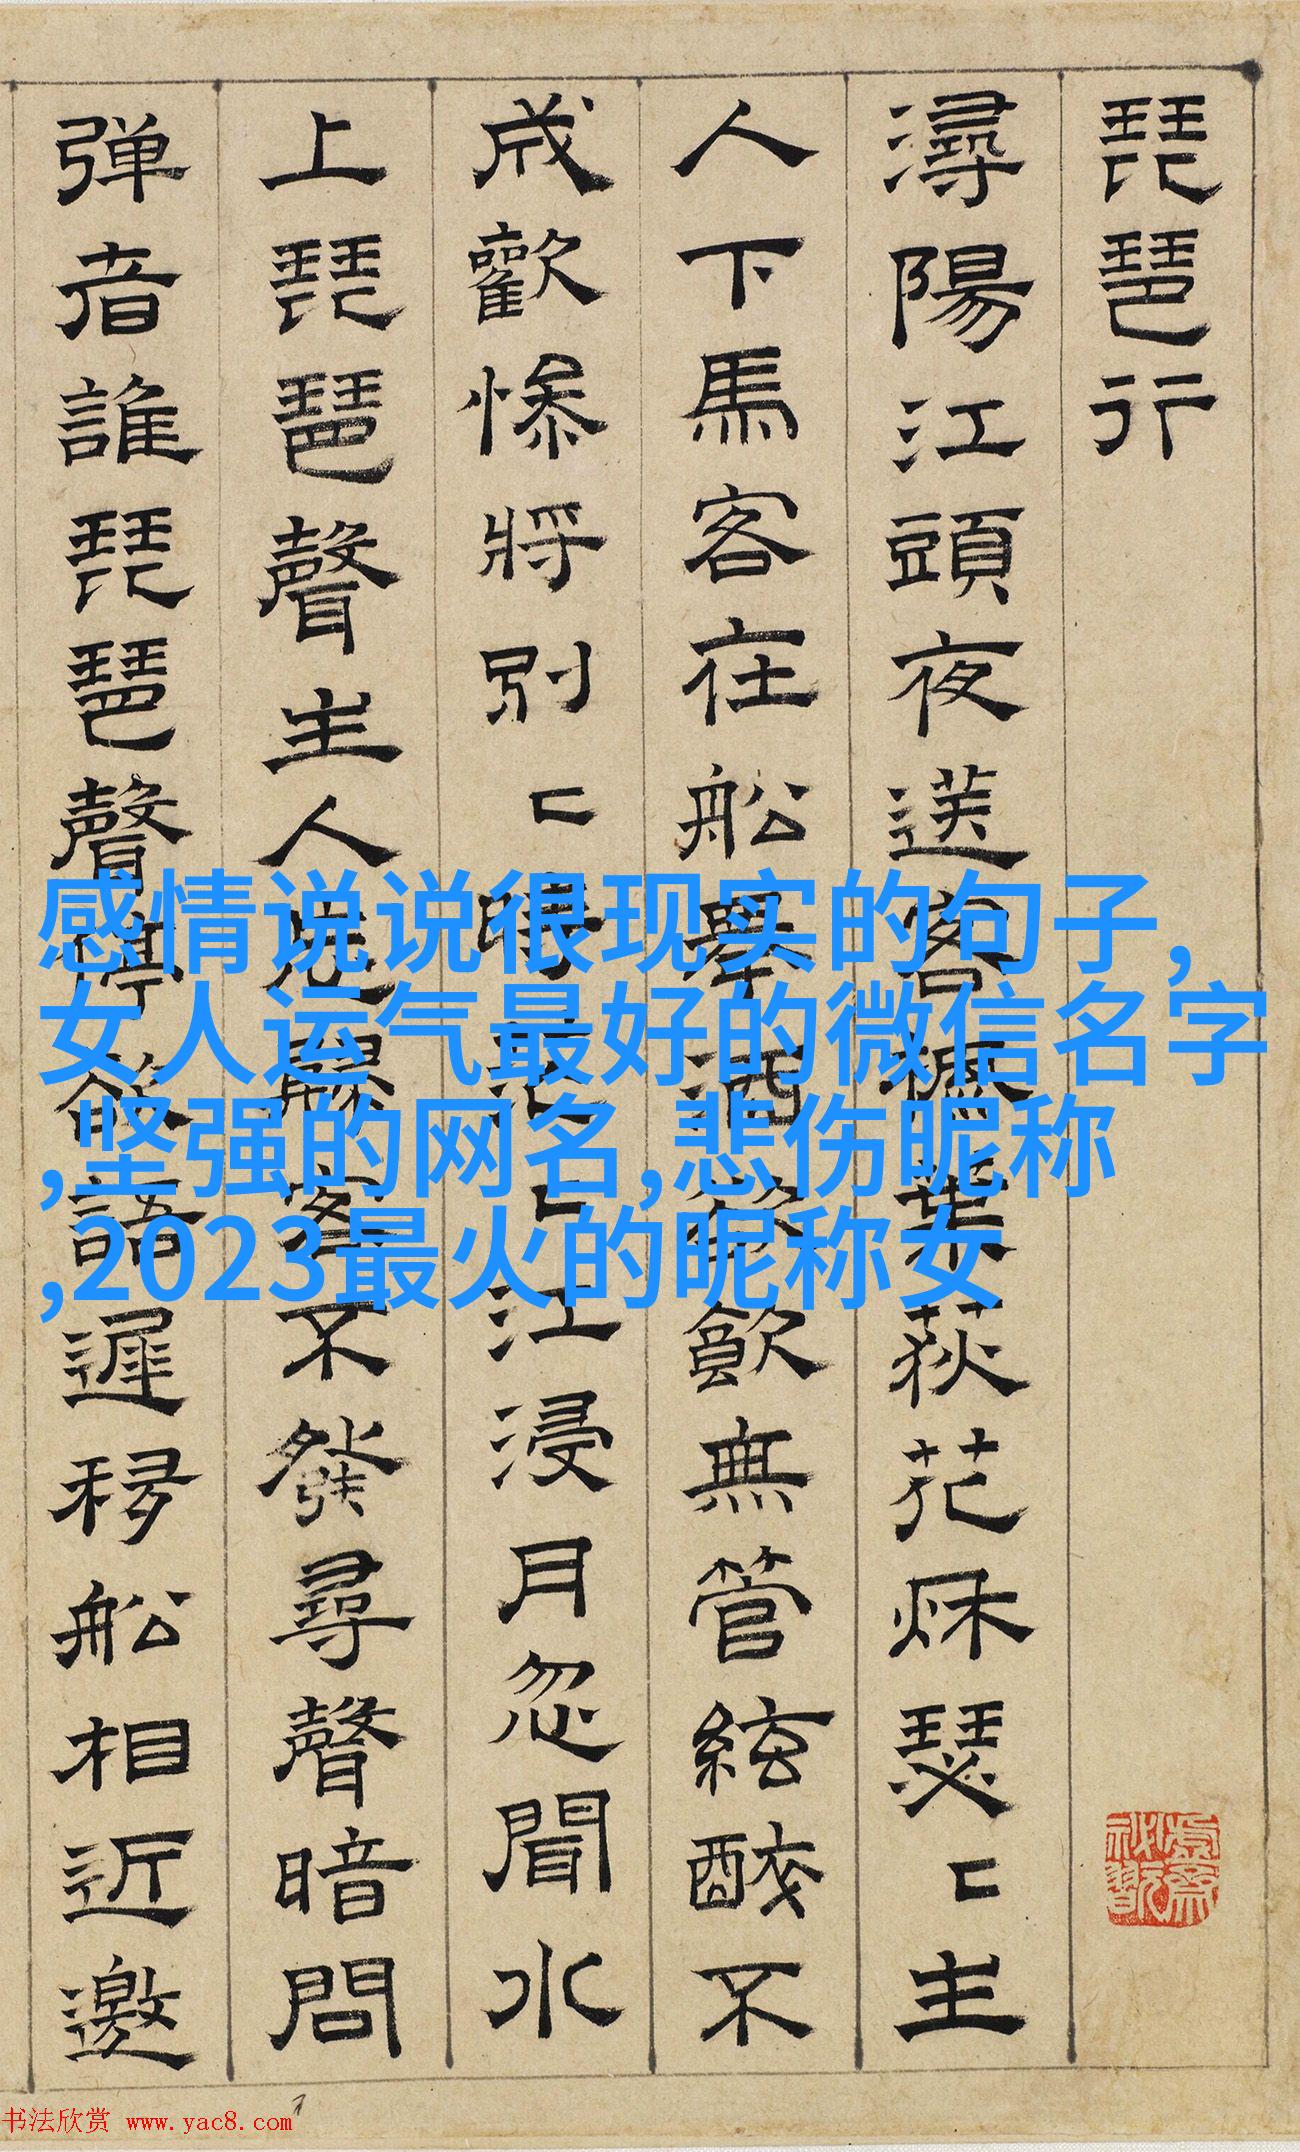 琵琶行
潯陽江頭夜送客楓葉荻花秌瑟〻主
人下馬客在船舉酒欲飲無管絃醉不
成歡慘將別〻時茫〻江浸月忽聞水
上琵琶聲主人忘歸客不發尋聲暗問
弹者誰琵琶聲停欲語遲移船相近邀
感情说说很现实的句子,
女人运气最好的微信名字
,坚强的网名,悲伤昵称
,2023最火的昵称女
书法欣赏 www.yac8.com